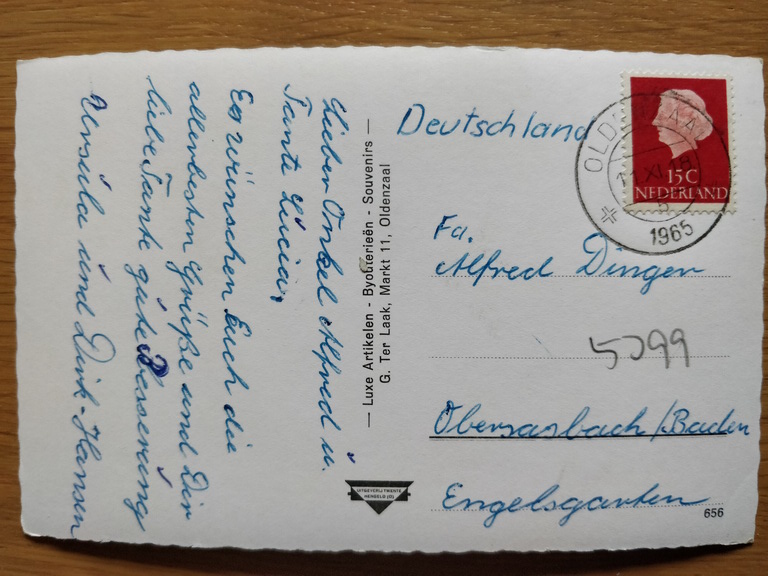 Lieber Onkel Alfred u.
Tante Lucia,
Es wünschen Euch die
allerbesten Grüße und Dir
liebe Tante gute Besserung
Ursula und Dirk-Hansen
— Luxe Artikelen - Byouterieën - Souvenirs —
G. Ter Laak, Markt 11, Oldenzaal
UITGEVERIJ TWENTE
HENGELO (O)
Deutschland
OLDENZAAL
11.XI.16
1965
15C
NEDERLAND
Fa.
Alfred Dinger
5099
Obersasbach/Baden
Engelsgarten
656